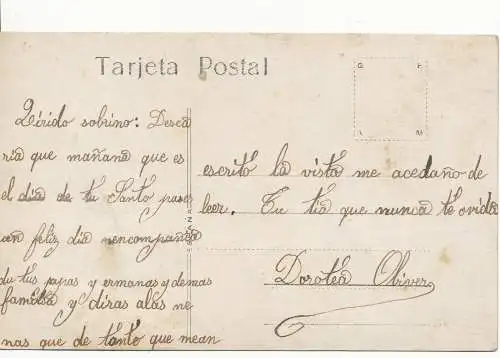 Tarjeta Postal
Qirido sobrino: Desea
ria que mañana que es
el dia de tu Santo pases
un feliz dia nencompañia
du tus papas y ermanas y demas
familia y diras alas ne
nas que de tanto que mean
escrito la vista me acedaño de
leer. Tu tia que nunca te ovida
Dorotea Oliver